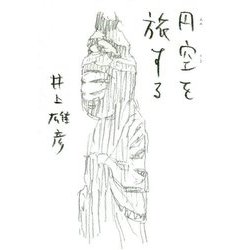 円空を
旅する
井上雄彦